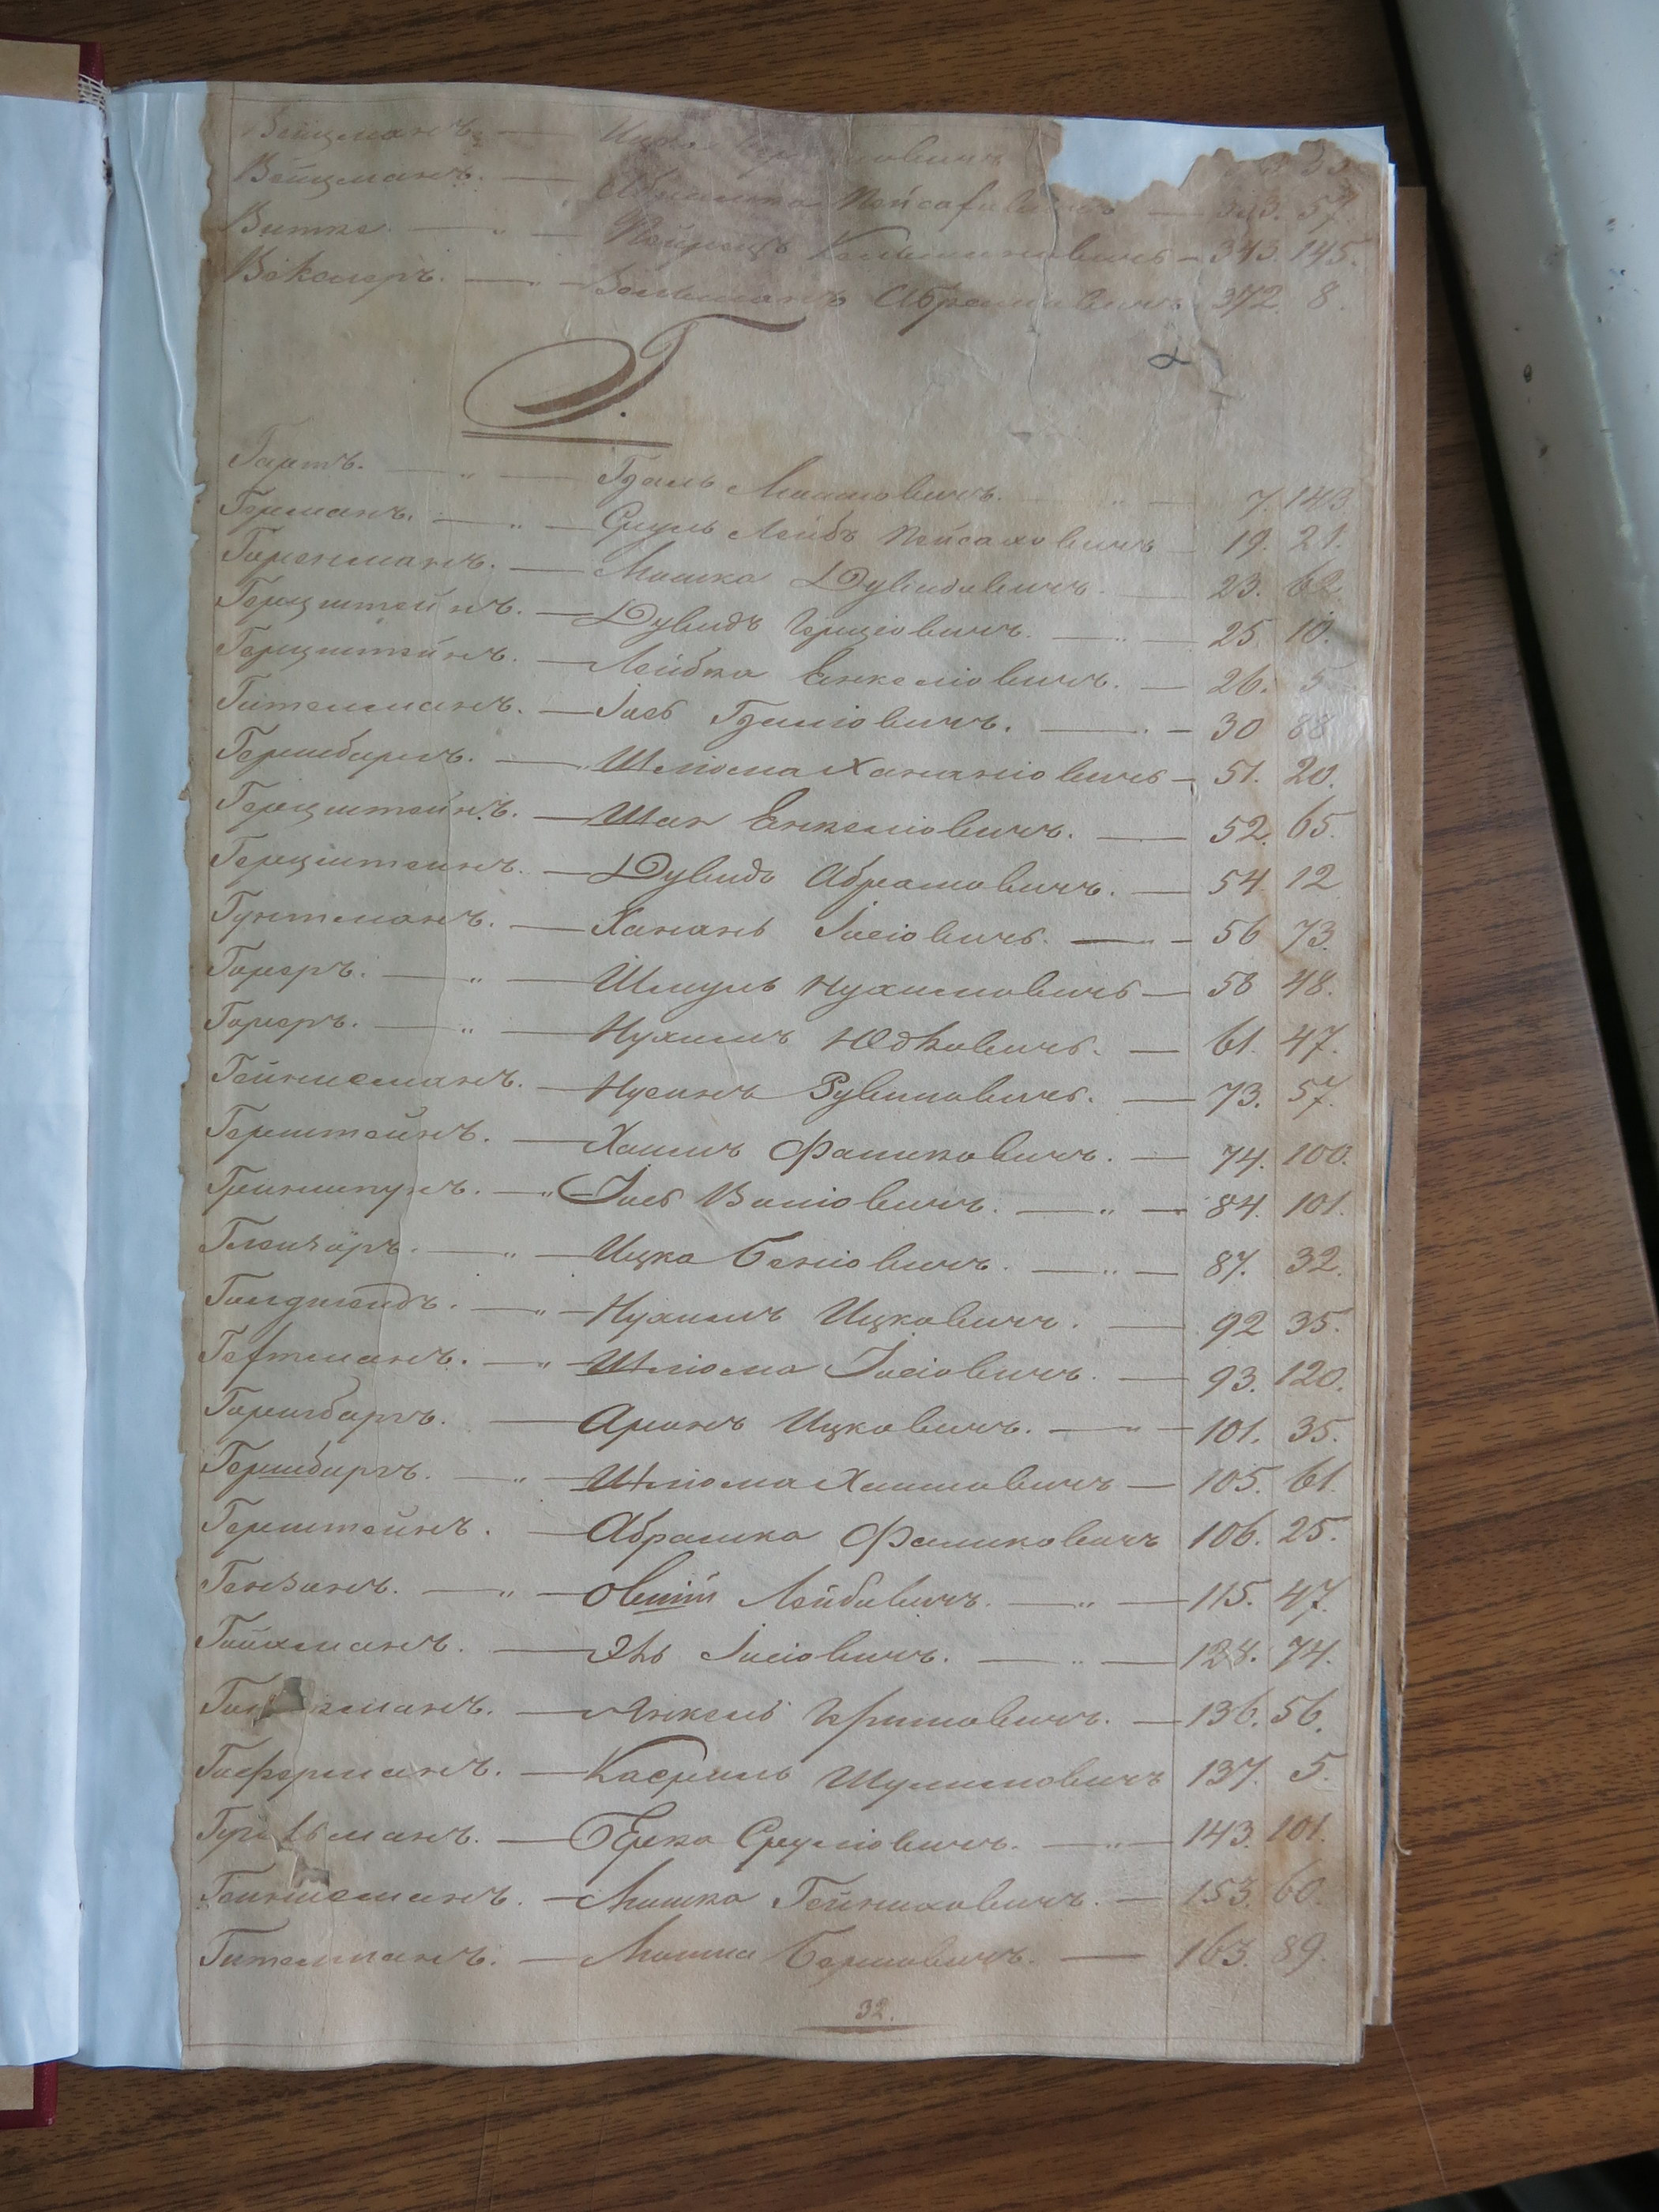 Вейцманъ. — Ицко
Вейцманъ. — Абрамко Пейсаховичъ — 343. 57.
Витке. — " — 343. 145.
Векслеръ. — " — Абрамовичъ 372. 8.
Г.
Гартъ. — " — Гдаль Мошковичъ. — " — 7. 143.
Германъ. — " — Сруль Лейбъ Пейсаховичъ — 19. 21.
Горенманъ. — Мошко Дувидовичъ. — 23. 62.
Герцштейнъ. — Дувидъ Герціовичъ. — " — 25. 10.
Герцштейнъ. — Лейбко Енкеліовичъ. — 26. 5
Гительманъ. — Іось Гдаліовичъ. — 30 88
Гершбергъ. — Шлиома Хананіовичъ — 51. 20.
Герцштейнъ. — Шая Енкеліовичъ. — 52. 65.
Герцштейнъ. — Дувидъ Абрамовичъ. — 54. 12
Гунтманъ. — Хананъ Іосіовичъ. — " — 56 73.
Гореръ. — " — Шмуль Нухимовичъ — 58 48.
Гореръ. — " — Нухимъ Юдковичъ. — 61. 47.
Гейнисманъ. — Нусинъ Рувиновичъ. — 73. 57.
Герштейнъ. — Хаимъ Фаликовичъ. — 74. 100.
Гриншпунъ. — " Іось Волiовичъ. — " — 84. 101.
Глейзеръ. — " — Ицко Беніовичъ. — " — 87. 32.
— " — Нухимъ Ицковичъ. — 92 35.
Гехтманъ. — " — Шлиома Іосіовичъ. — 93. 120.
Гершбергъ. — Аронъ Ицковичъ. — " — 101. 35.
Гершбергъ. — " — Шлиома Хаимовичъ — 105. 61.
Герштейнъ. — Абрамко Фаликовичъ 106. 25.
Гензанъ. — " — Овшій Лейбовичъ. — " — 115. 47.
Гойхманъ. — Эль Іосіовичъ. — " — 128. 74.
— Янкель — 136. 56.
Гоферманъ. — Касриль Шулимовичъ 137. 5.
— Берко Сруліовичъ. — " — 143. 101.
Гейнисманъ. — Мошко Гейниховичъ. — 153. 60.
Гительманъ. — Мошко Берковичъ. — 163. 89.
32.